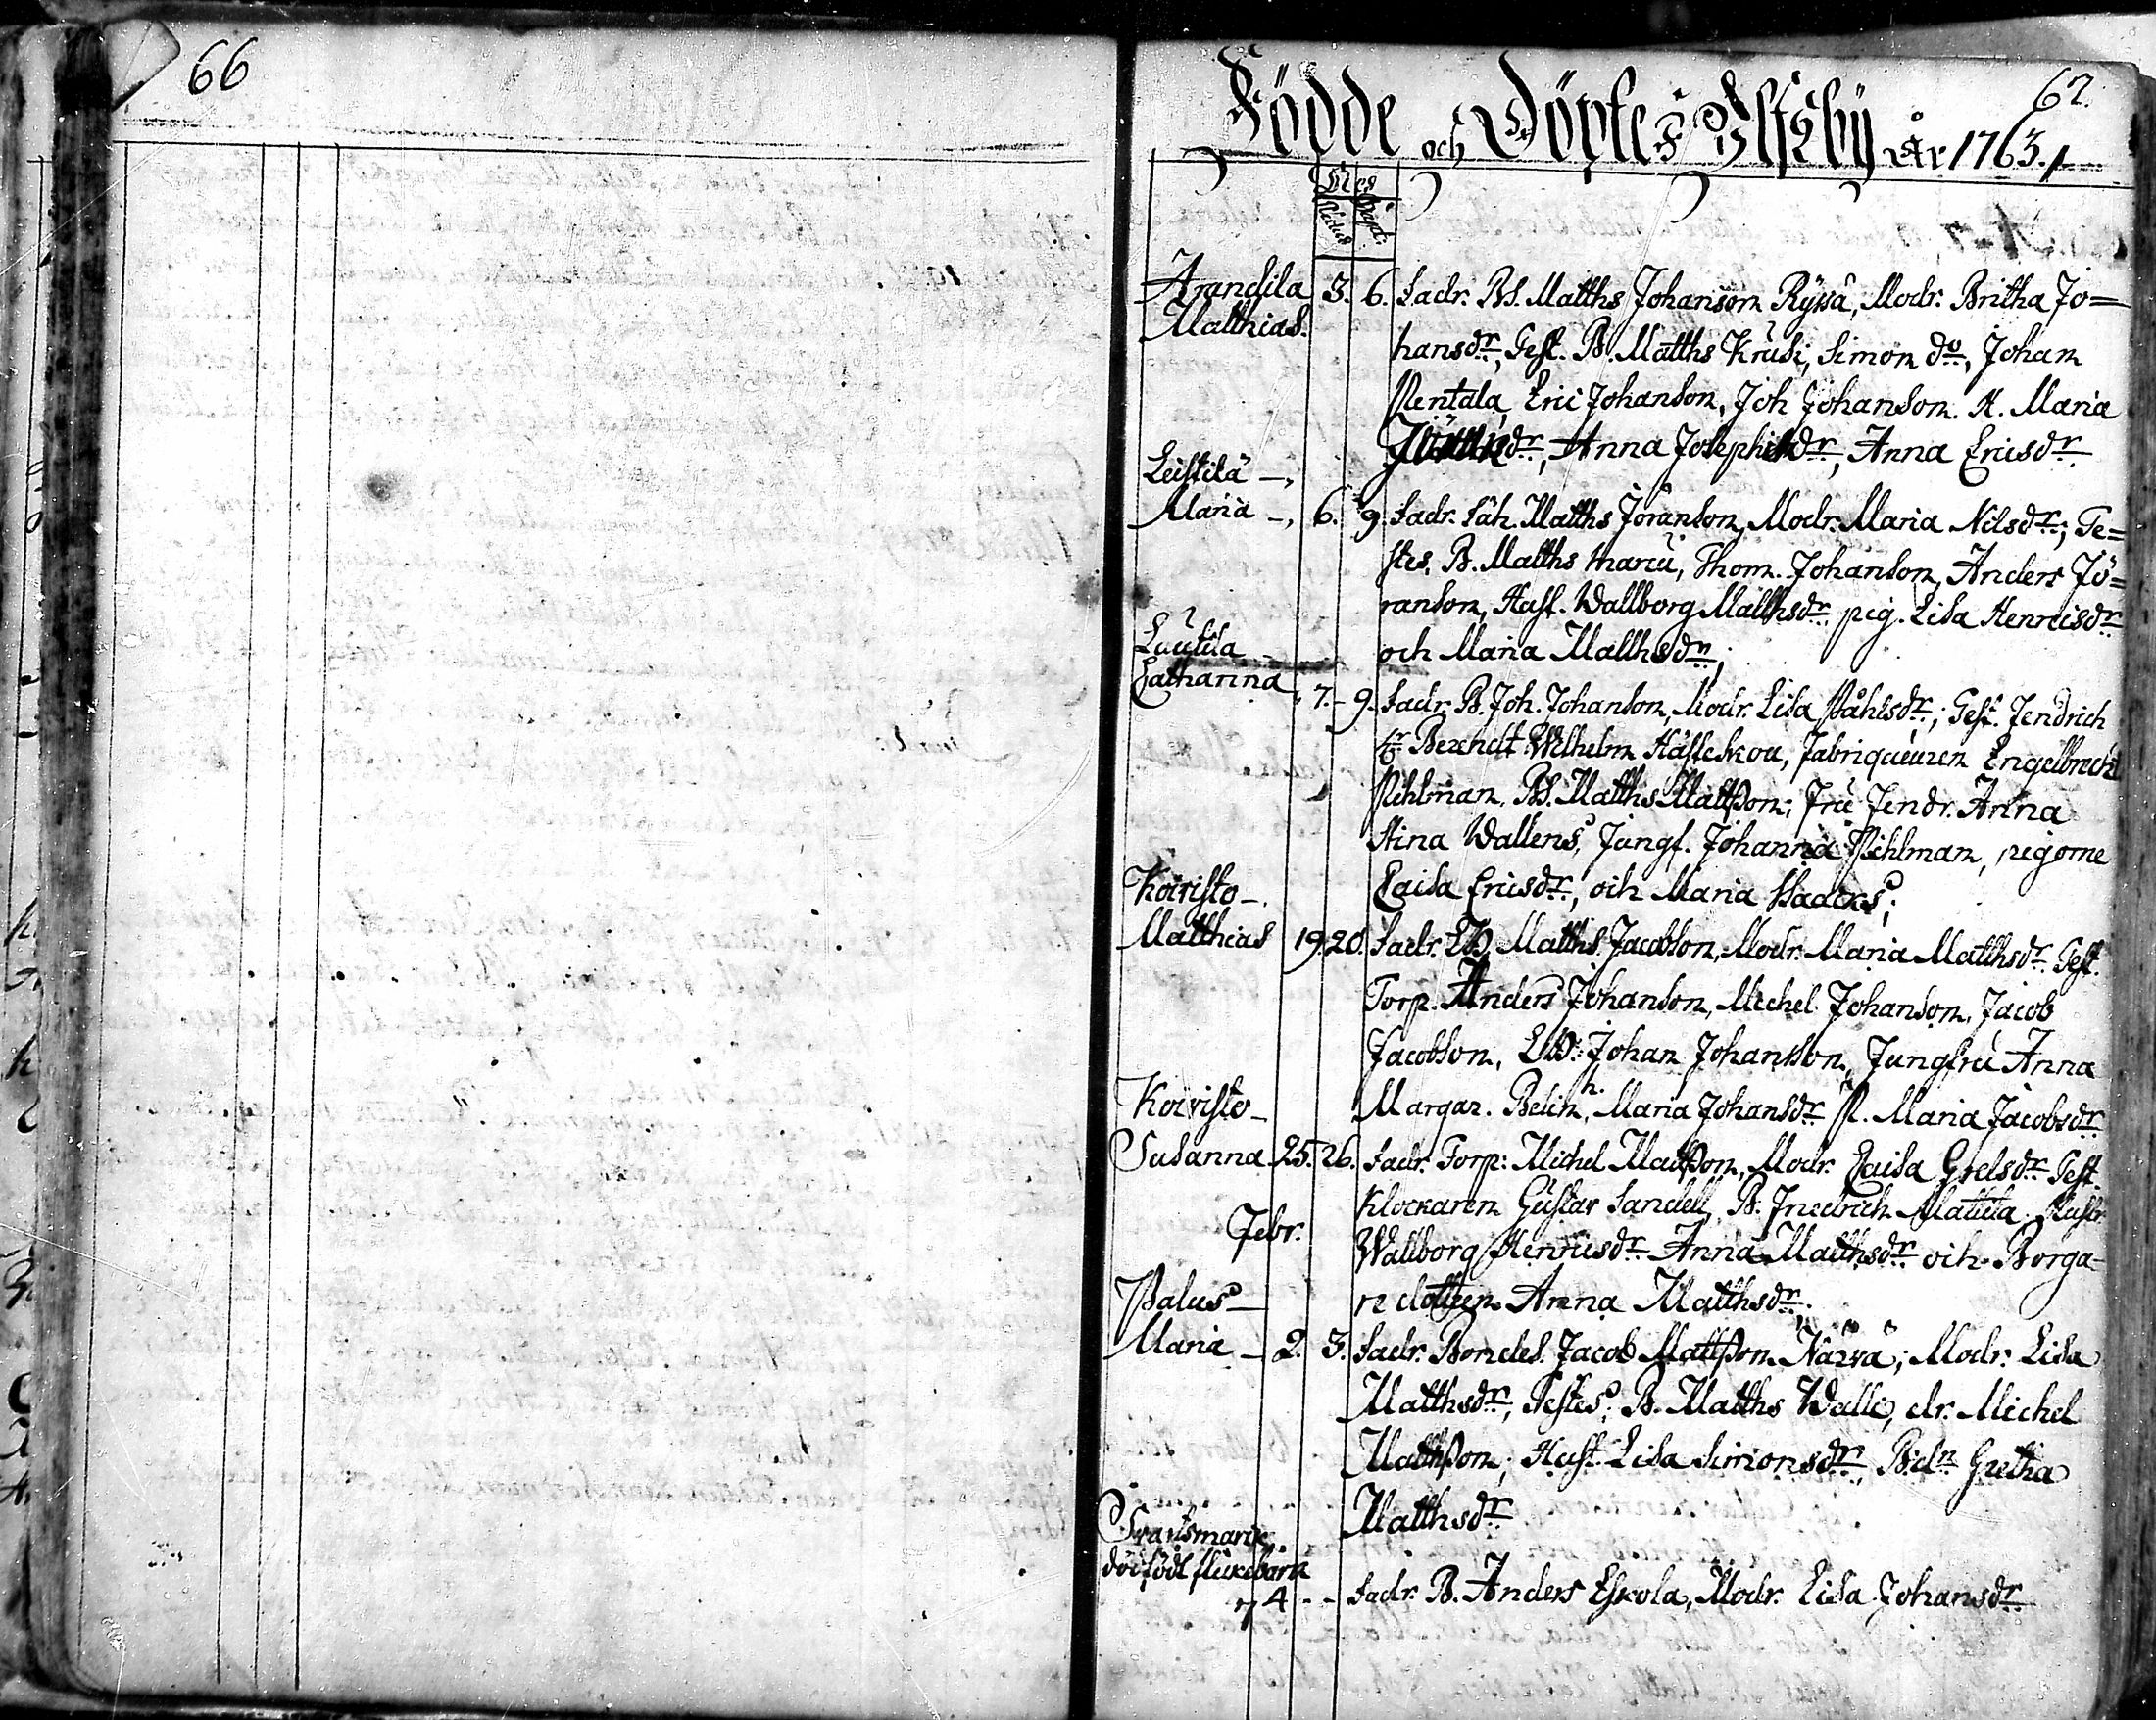 66
67.
Födde och Döpte i Ulfsby År 1763.
Dies
Natus Bapt:
Arandila 3. 6. Fadr. Bs. Matths Johanson Ryssä, Modr. Britha Jo=
Matthias.
hansdr; Test. B. Matths Krusi, Simon do, Johan
Pentala, Eric Johanson, Joh Johanson. H. Maria
dr, Anna Josephsdr, Anna Ericsdr
Leistilä -,
Maria -, 6. 9. Fadr. Matths Jöranson, Modr. Maria Nilsdr; Te=
stes, B. Matths Harju, Thom. Johanson, Anders Jö=
ranson, Hust. Wallborg Matthsdr pig. Lisa Henricsdr
och Maria Matthsdr;
Lautila
Catharina, 7. - 9. Fadr. B. Joh. Johanson, Modr. Lisa Påhlsdr; Test. Fendrich
Hr Berendt Wilhelm Hästeskou, Fabriqueuren Engelbrecht
Pihlman, Bs. Matths Mattsson; Fru Fendr. Anna
Stina Wallens, Jungf. Johanna Pihlman, pigorne
Caisa Ericsdr, och Maria Staaers;
Koivisto -.
Matthias 19. 20. Fadr. Matths Jacobson, Modr. Maria Matthsdr Test.
Torp. Anders Johanson, Michel Johanson, Jacob
Jacobson, Johan Johansson, Jungfru Anna
Margar. Belin, Maria Johansdr P. Maria Jacobsdr
Koivisto -
Susanna 25. 26. Fadr. Torp: Michel Mattsson, Modr. Caisa Grelsdr Test.
Klockaren Gustav Sandell, B. Friedrich Mattila. Hustr
Febr.
Wallborg Henricsdr Anna Matthsdr och Borga-
re dottren Anna Matthsdr.
Palus -
Maria - 2. 3. Fadr. Bondes. Jacob Mattsson Närvä; Modr. Lisa
Matthsdr, Testes; B. Matths Walli, dr. Michel
Mattsson; Hust. Lisa Simonsdr, Bdr Gretha
Matthsdr
Svartsmark,
dödfödt flickebarn
4 - - Fadr. B. Anders Eskola, Modr. Lisa Johansdr